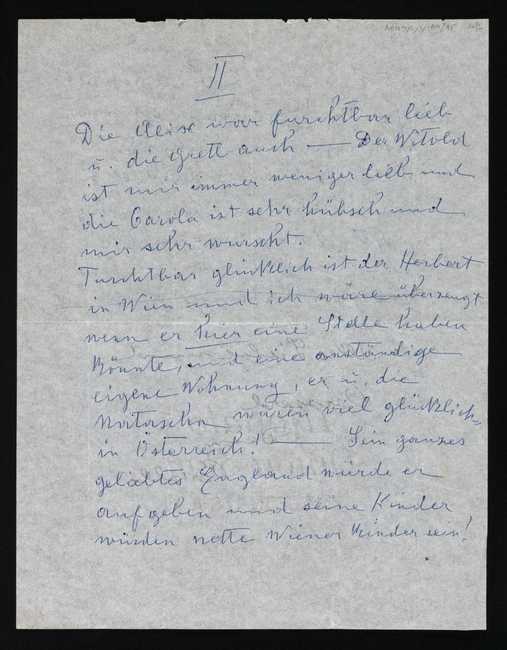 II
Die Alix war furchtbar lieb
u. die Gretl auch — Der Witold
ist mir immer weniger lieb und
die Carola ist sehr hübsch und
mir sehr wurscht.
Furchtbar glücklich ist der Herbert
in Wien und ich wäre überzeugt
wenn er hier eine Stelle haben
könnte, und eine anständige
eigene Wohnung, er u. die
Natascha wären viel glücklich
in Österreich! — Sein ganzes
geliebtes England würde er
aufgeben und seine Kinder
würden nette Wiener Kinder sein!